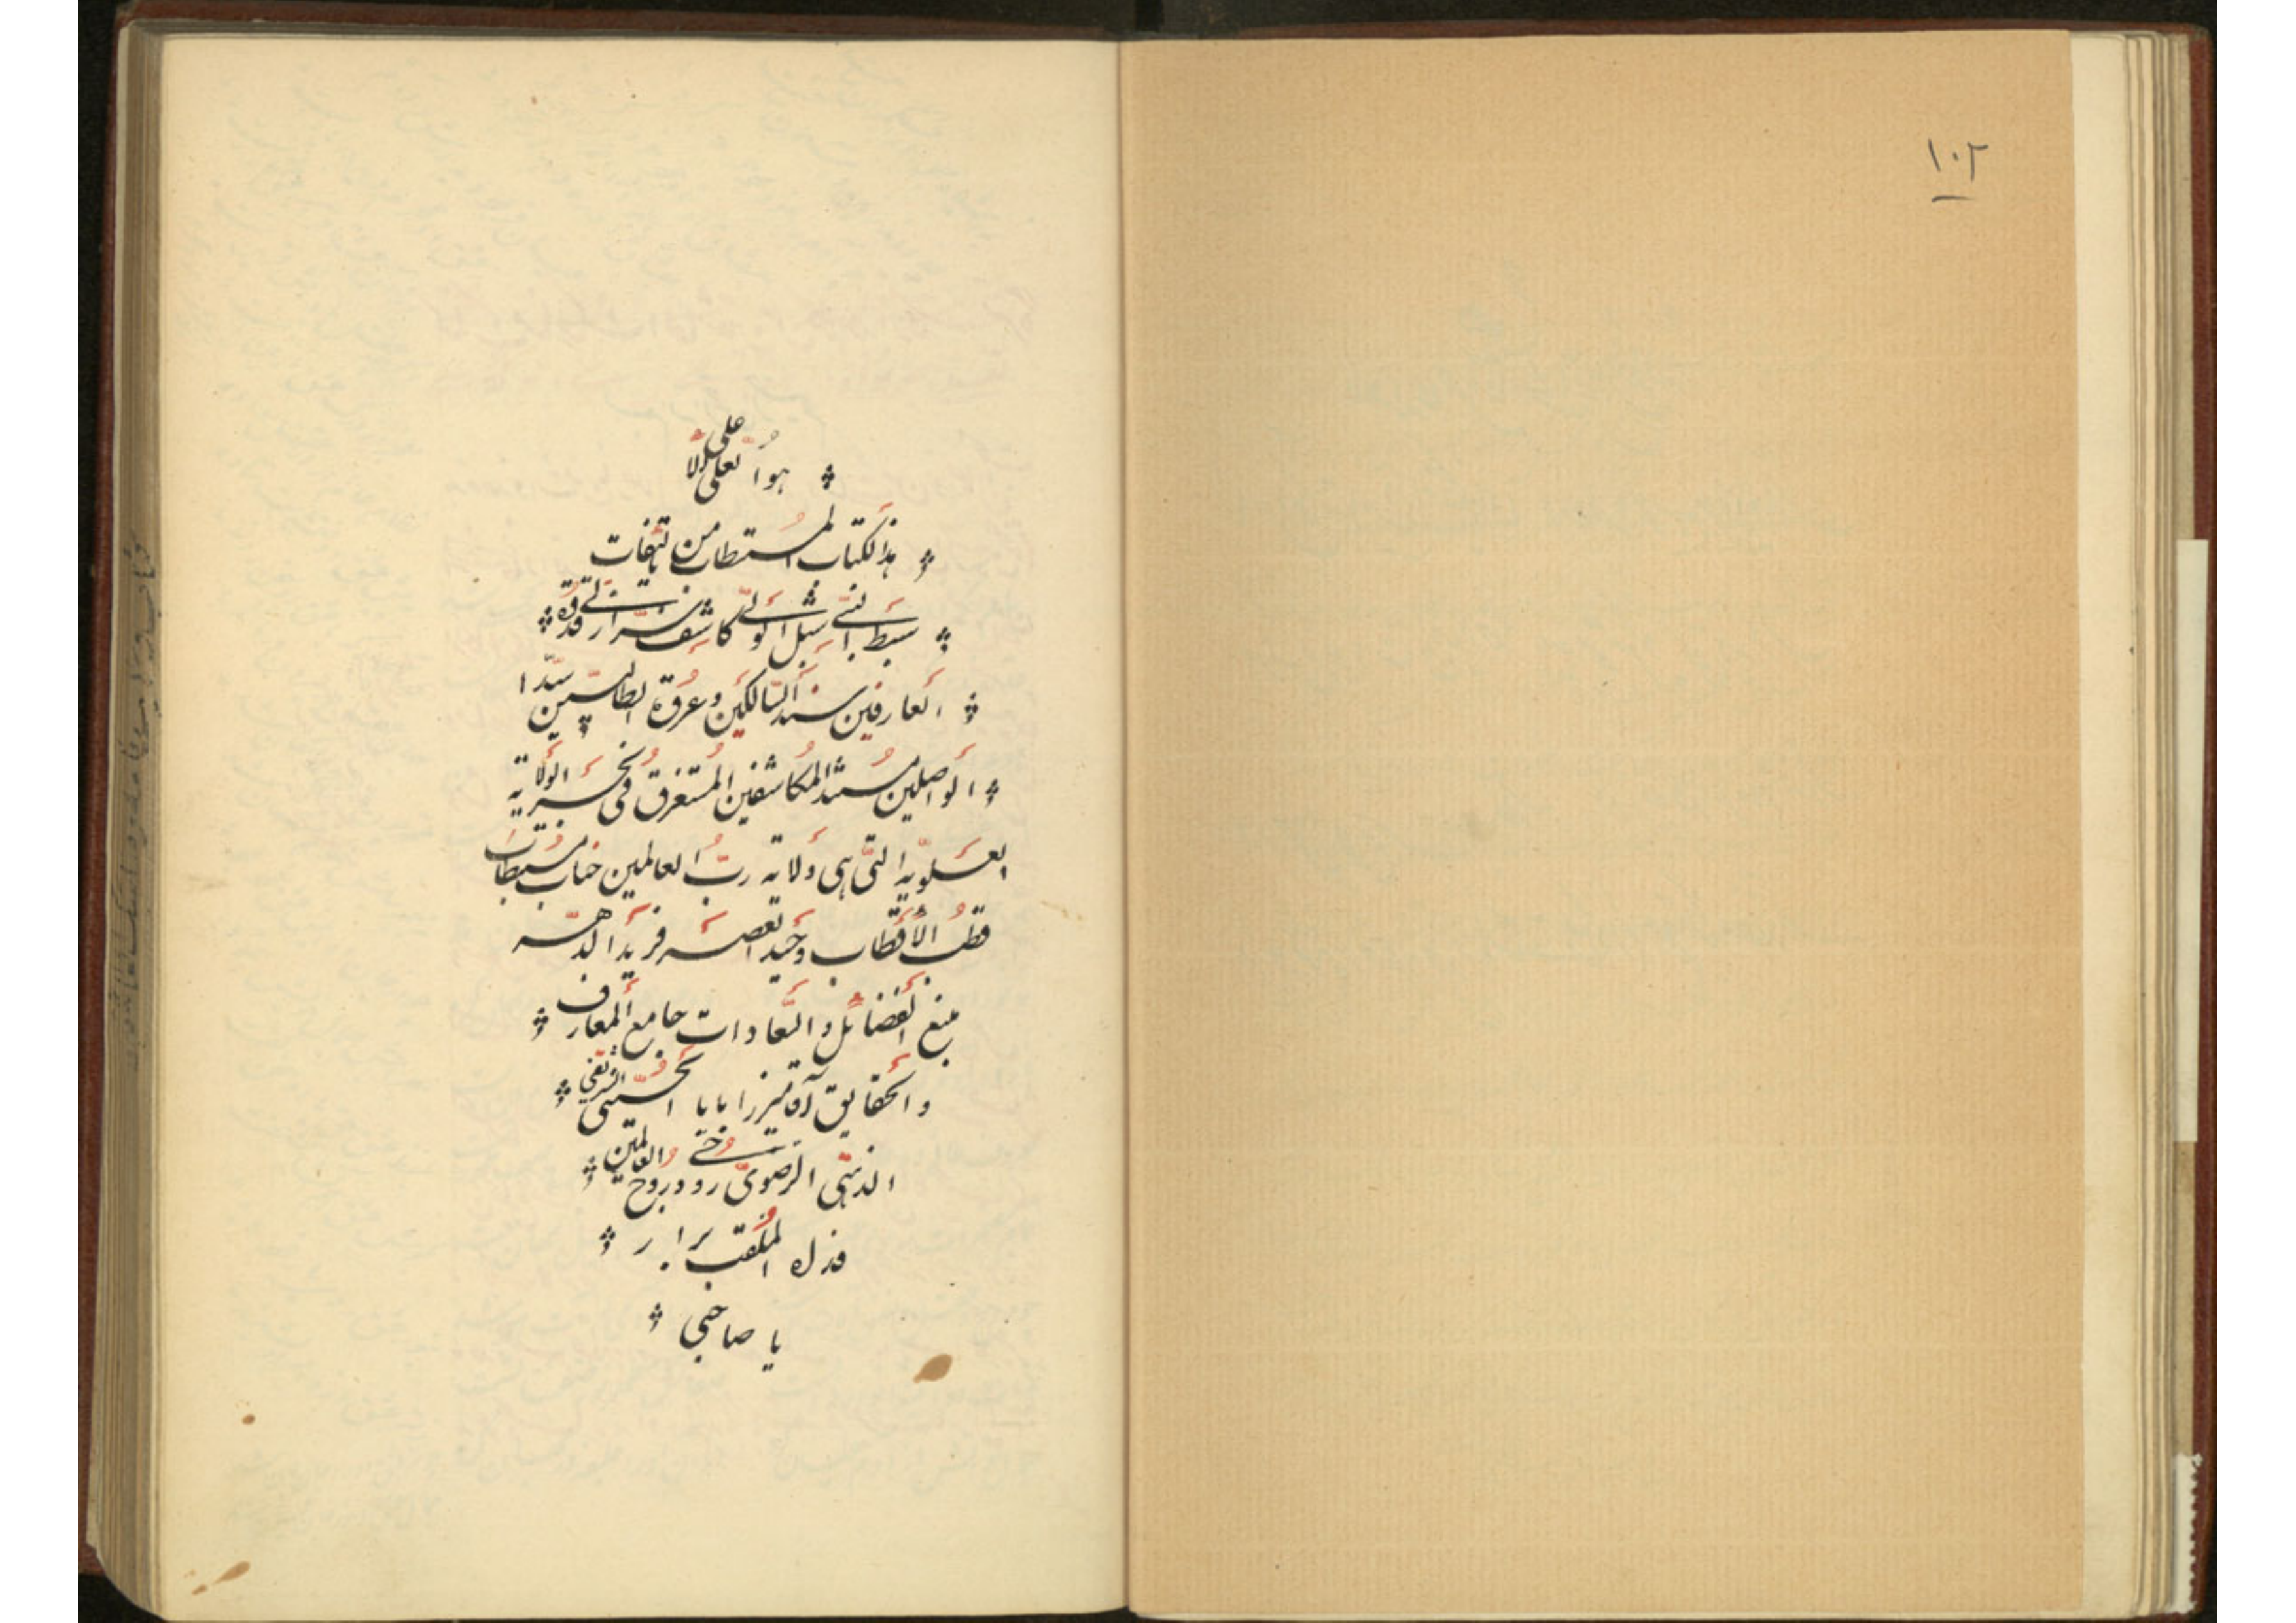 ۱۰۲
هو العلی الاعلی
هذا الکتاب المستطاب من تالیفات
سبط النبی شبل الولی کاشف
العارفین سند السالکین و عروة الطالبین سیّد
الواصلین مستند المکاشفین المستغرق فی بحر الولایة
العلویّه التی هی ولایة ربّ العالمین جناب مستطاب
قطب الاقطاب وحید العصر فرید الدهر
منبع الفضائل و السّعادات جامع المعارف
و الحقایق آقا میرزا بابا الحسینی الشریفی
الذهبی الرضوی روحی و روح العالمین
فداه الملقب براز
یا صاحبی